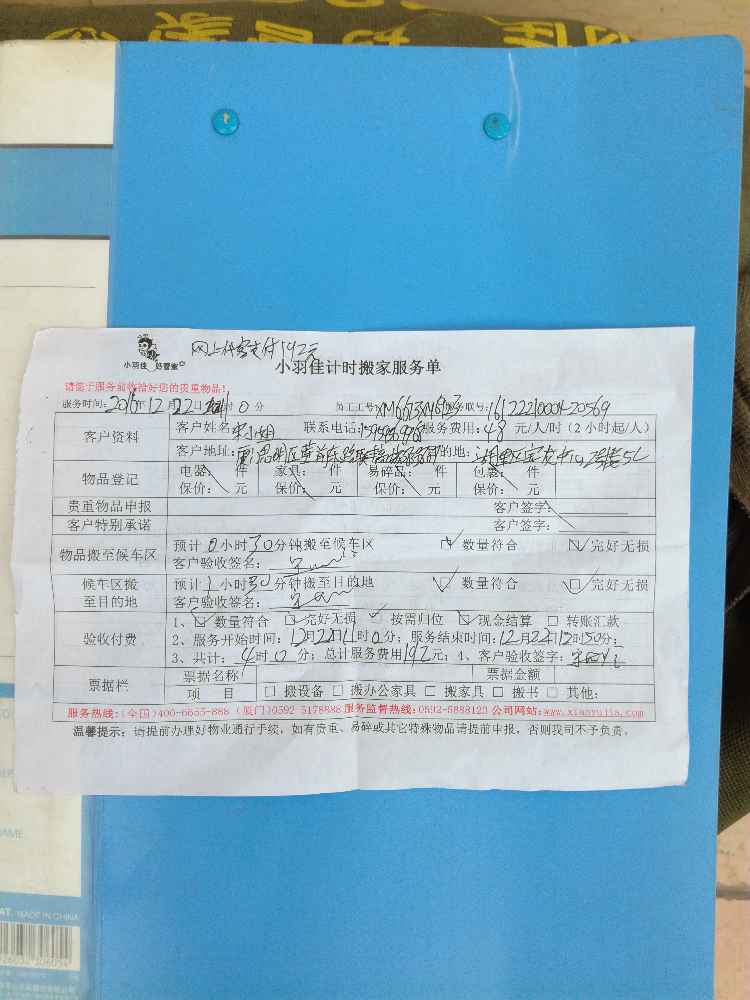 网上下客支付192元
小羽佳 好管家
小羽佳计时搬家服务单
请您于服务前收拾好您的贵重物品!
服务时间: 2016年12月22日 时0分 员工工号: XM6673XM6123 服务联号: 16122210001-20569
客户资料
客户姓名 联系电话: 服务费用: 48元/人/时(2小时起/人)
客户地址: 厦门思明区 目的地:
物品登记
电器: 件 家具: 件 易碎品: 件 包裹: 件
保价: 元 保价: 元 保价: 元 保价: 元
贵重物品申报 客户签字:
客户特别承诺 客户签字:
物品搬至候车区
预计0小时30分钟搬至候车区 数量符合 完好无损
客户验收签名:
候车区搬至目的地
预计1小时30分钟搬至目的地 数量符合 完好无损
客户验收签名:
验收付费
1、数量符合 完好无损 按需归位 现金结算 转账汇款
2、服务开始时间: 12月22日11时0分; 服务结束时间: 12月22日12时50分;
3、共计: 4时0分; 总计服务费用192元; 4、客户验收签字:
票据栏
票据名称 票据金额
项 目 搬设备 搬办公家具 搬家具 搬书 其他:
服务热线:(全国)400-6655-888 (厦门)0592-5178888 服务监督热线:0592-5888123 公司网站:www.xiaoyujia.com
温馨提示: 请提前办理好物业通行手续, 如有贵重、易碎或其它特殊物品请提前申报, 否则我司不予负责。
MADE IN CHINA